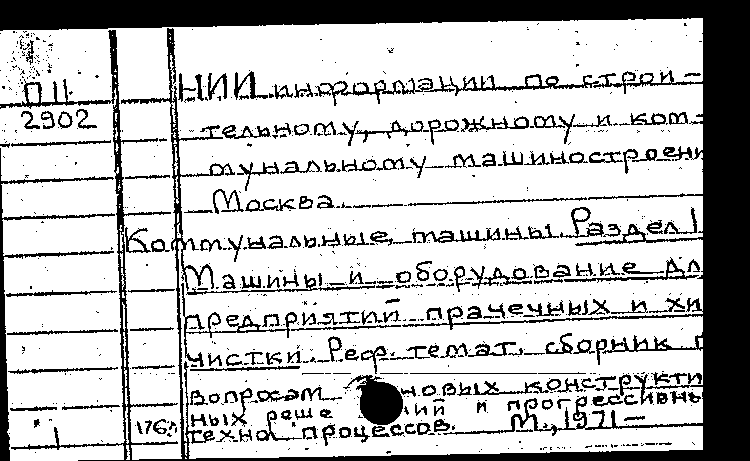 П11
2902
НИИ информации по строи-
тельному, дорожному и ком-
мунальному машиностроени
Москва.
Коммунальные машины. Раздел 1
Машины и оборудование дл
предприятий прачечных и хи
чистки. Реф. темат. сборник п
вопросам новых конструкти
ных реше ний и прогрессивны
техно процессов. М., 1971-